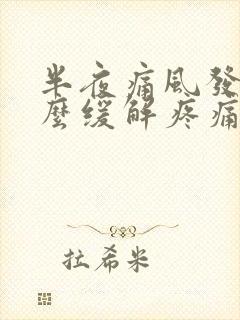 半夜痛風發
麼緩解疼痛
拉希米